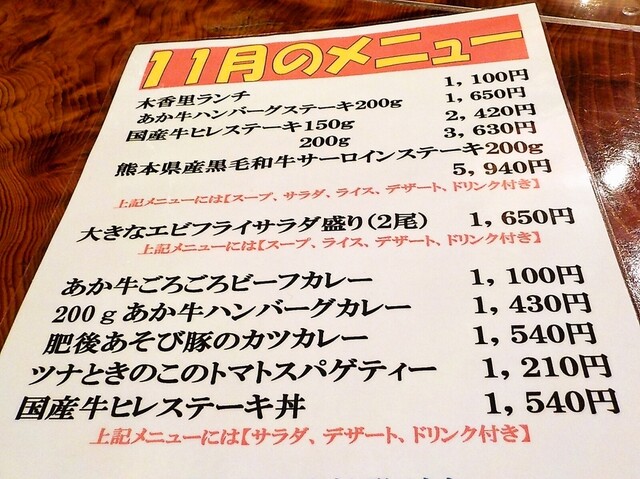 11月のメニュー
木香里ランチ 1,100円
あか牛ハンバーグステーキ200g 1,650円
国産牛ヒレステーキ150g 2,420円
200g 3,630円
熊本県産黒毛和牛サーロインステーキ200g
5,940円
上記メニューには【スープ、サラダ、ライス、デザート、ドリンク付き】
大きなエビフライサラダ盛り(2尾) 1,650円
上記メニューには【スープ、ライス、デザート、ドリンク付き】
あか牛ごろごろビーフカレー 1,100円
200gあか牛ハンバーグカレー 1,430円
肥後あそび豚のカツカレー 1,540円
ツナときのこのトマトスパゲティー 1,210円
国産牛ヒレステーキ丼 1,540円
上記メニューには【サラダ、デザート、ドリンク付き】